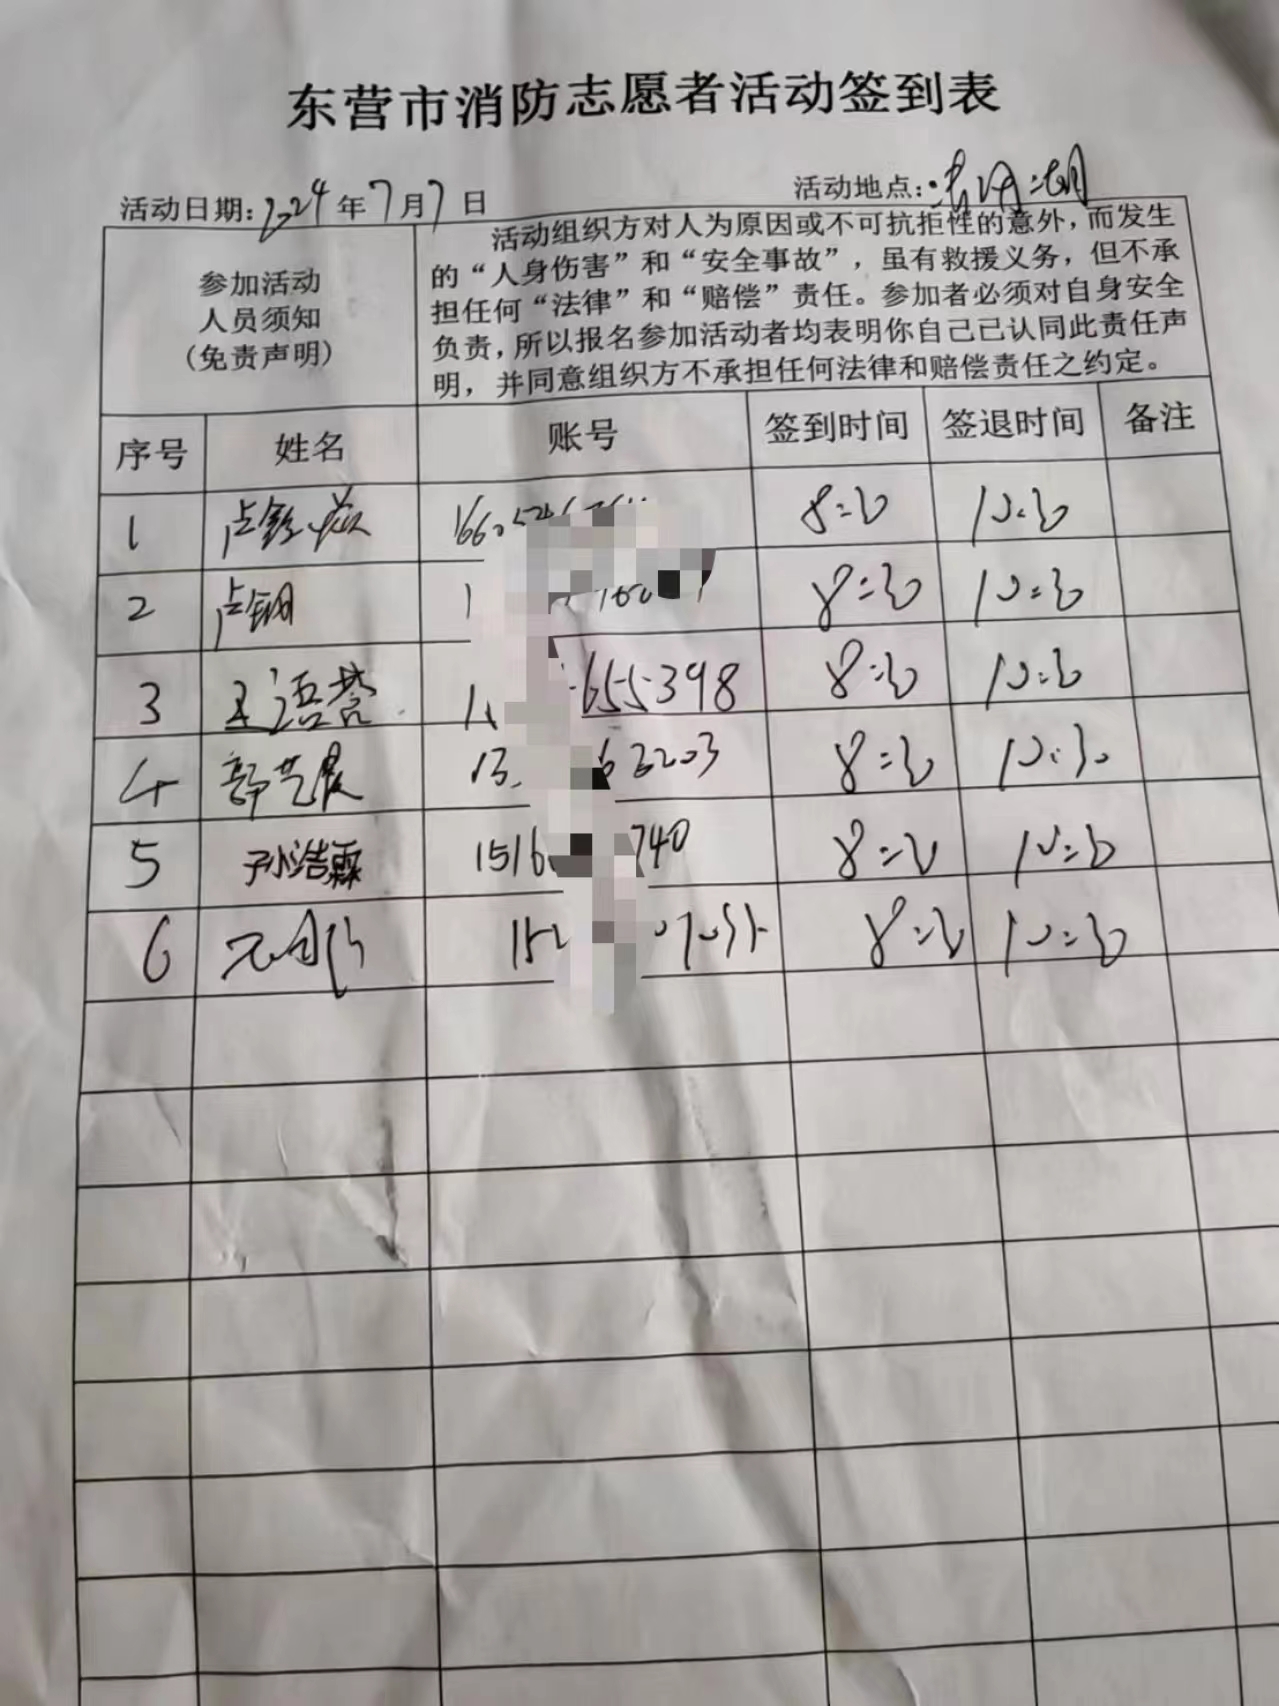 东营市消防志愿者活动签到表
活动日期:2024年7月7日 活动地点:清风湖
参加活动
人员须知
(免责声明)
活动组织方对人为原因或不可抗拒性的意外，而发生
的“人身伤害”和“安全事故”，虽有救援义务，但不承
担任何“法律”和“赔偿”责任。参加者必须对自身安全
负责，所以报名参加活动者均表明你自己已认同此责任声
明，并同意组织方不承担任何法律和赔偿责任之约定。
序号 姓名 账号 签到时间 签退时间 备注
1 8:30 10:30
2 卢钢 8:30 10:30
3 王语誉 655398 8:30 10:30
4 郭艺晨 13 63203 8:30 10:30
5 孙浩霖 1516 740 8:30 10:30
6 8:30 10:30